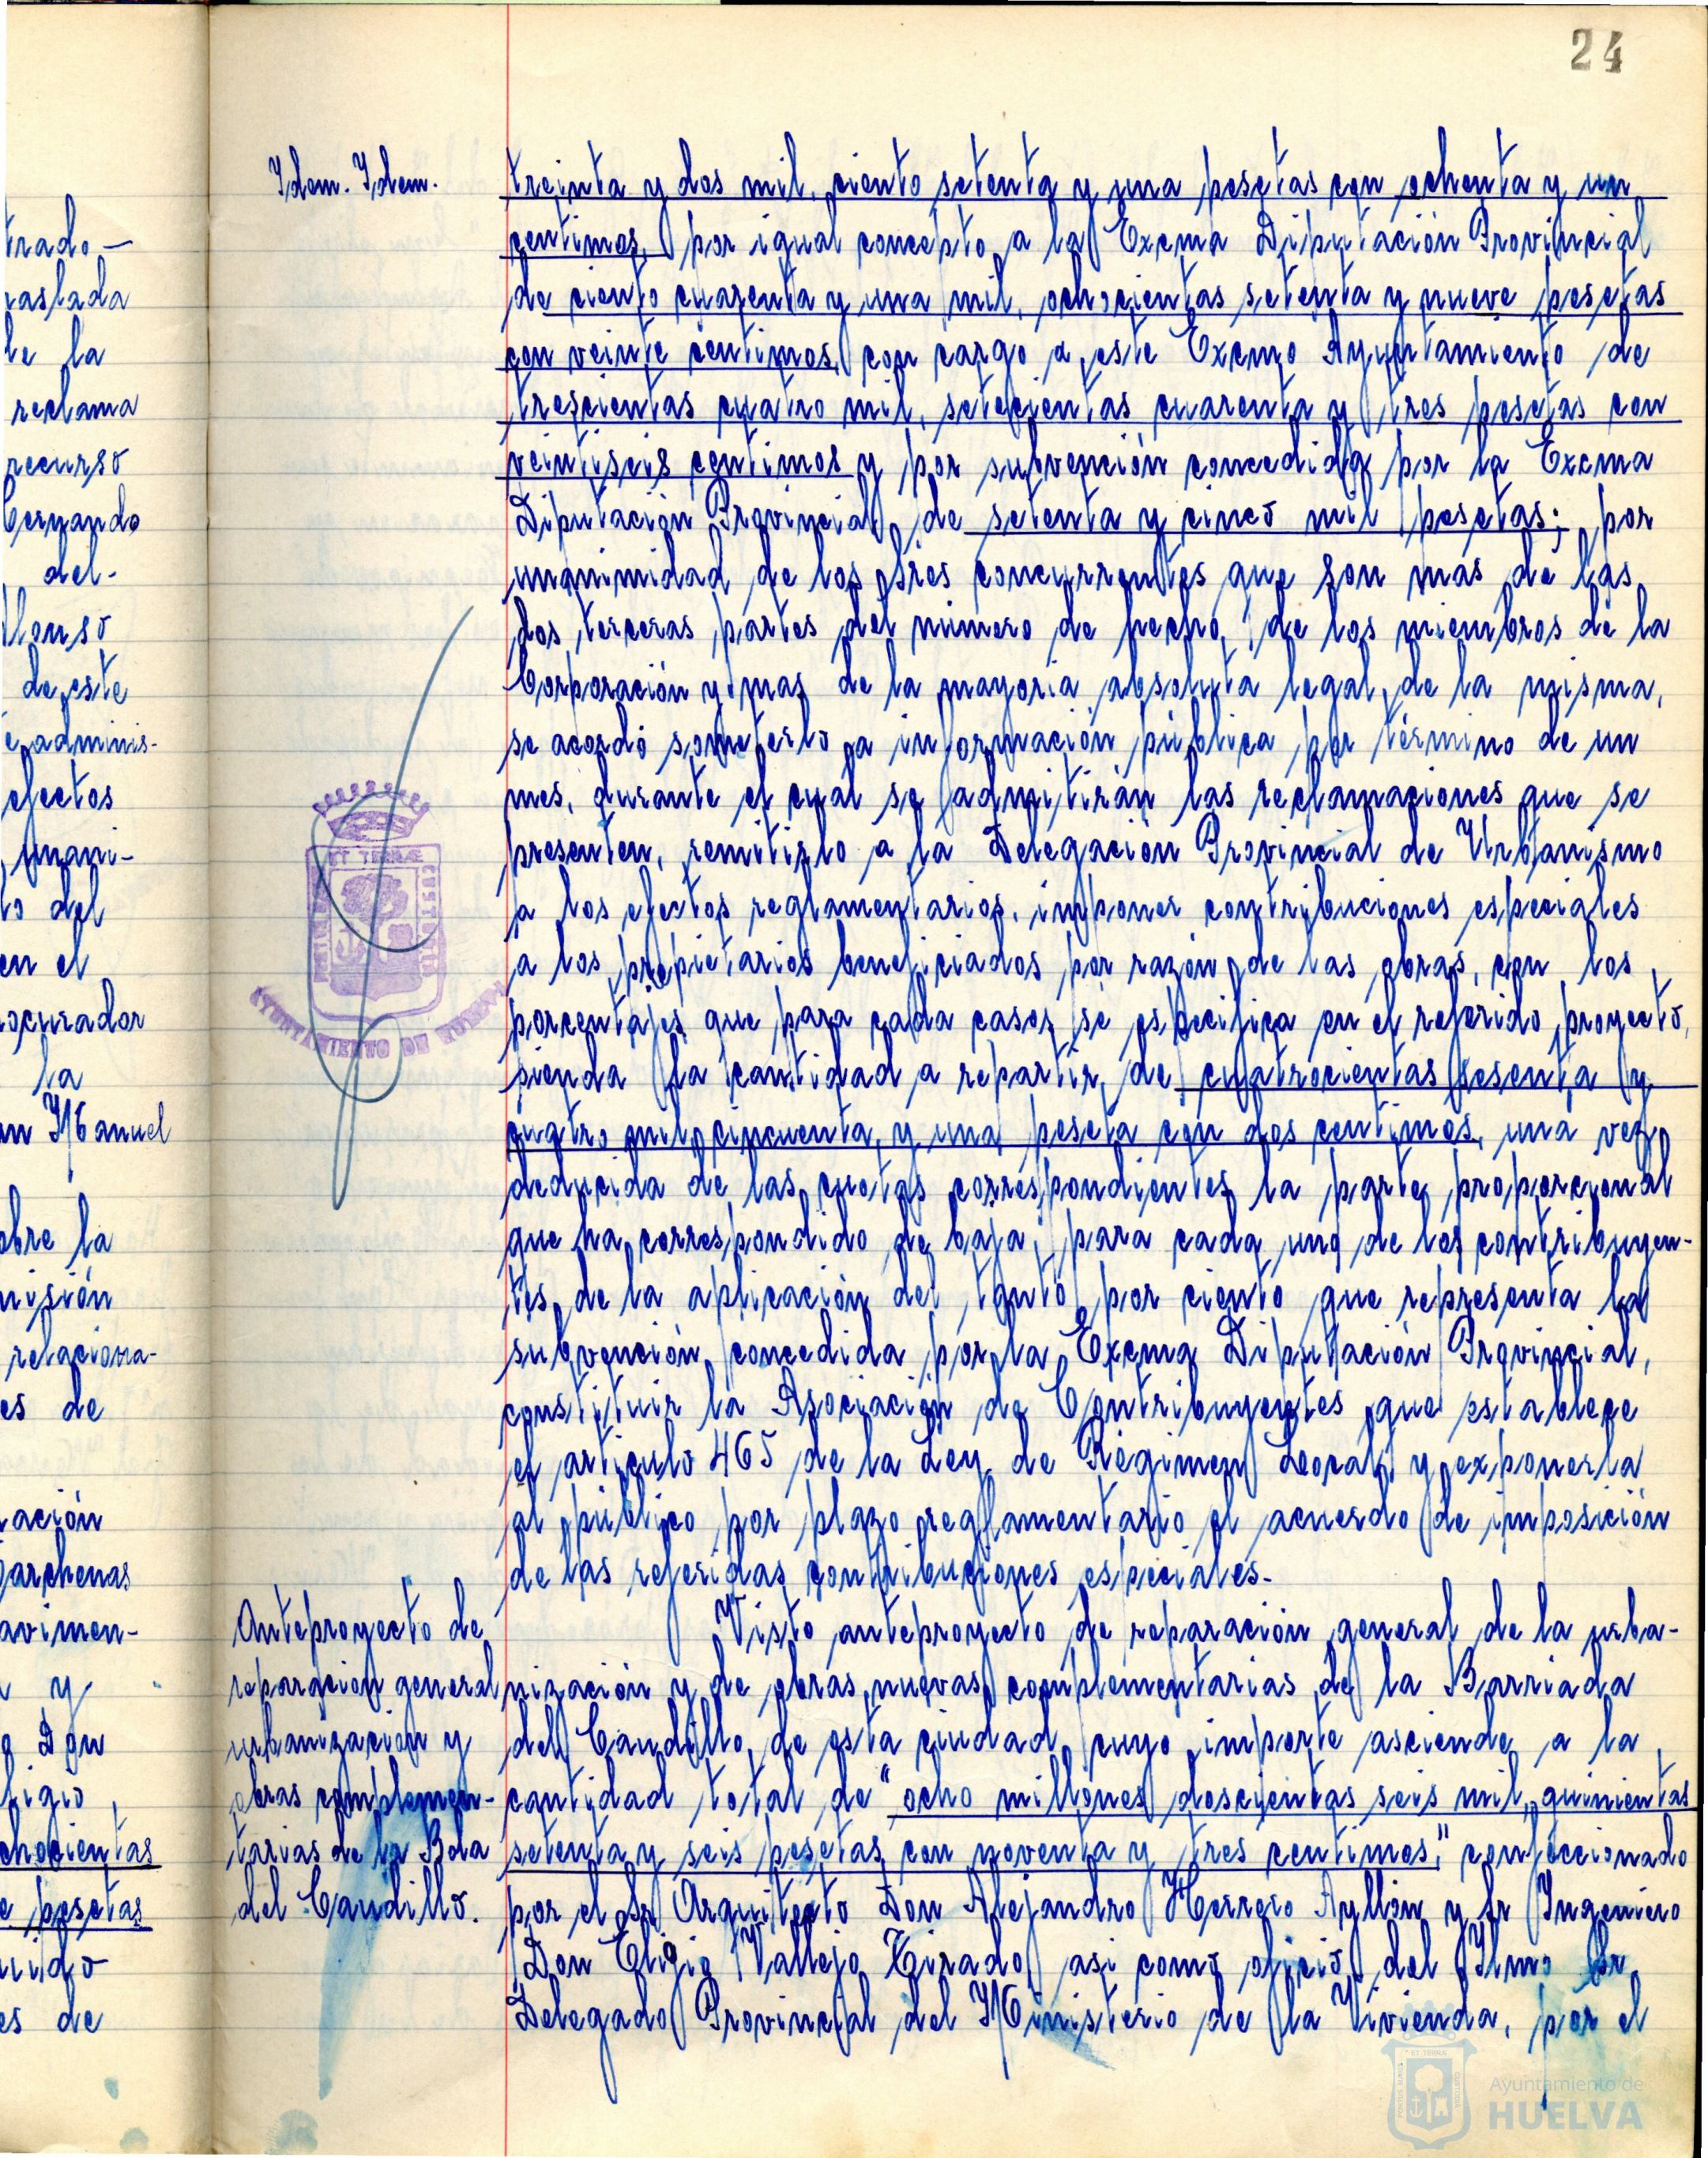 24
trado-
raslada
de la
reclama
recurso
Bernardo
del-
Alonso
de este
adminis-
efectos
unani-
to del
en el
rocurador
la
n Manuel
obre la
misión
relaciona-
es de
ación
garchenas
avimen-
y
o Don
ligio,
chocientas
e pesetas
uido
es de
Idem. Idem.
treinta y dos mil, ciento setenta y una pesetas con ochenta y un
centimos, por igual concepto a la Excma Diputación Provincial
de ciento cuarenta y una mil, ochocientas setenta y nueve pesetas
con veinte centimos, con cargo a este Excmo Ayuntamiento de
trescientas cuatro mil, setecientas cuarenta y tres pesetas con
veintiseis centimos y por subvención concedida por la Excma
Diputación Provincial, de setenta y cinco mil pesetas; por
unanimidad de los sres concurrentes que son mas de las
dos terceras partes del número de hecho, de los miembros de la
Corporación y mas de la mayoria absoluta legal, de la misma,
se acordó someterlo a información pública por término de un
mes, durante el cual se admitirán las reclamaciones que se
presenten, remitirlo a la Delegación Provincial de Urbanismo
a los efectos reglamentarios, imponer contribuciones especiales
a los propietarios beneficiados por razón de las obras, con los
porcentajes que para cada casos se especifica en el referido proyecto,
sienda la cantidad a repartir, de cuatrocientas sesenta y
cuatro mil, cincuenta, y una peseta con dos centimos, una vez
deducida de las cuotas correspondientes la parte proporcional
que ha correspondido de baja, para cada uno de los contribuyen-
tes, de la aplicación del tanto por ciento que representa la
subvención concedida por la Excma Diputación Provincial,
constituir la Asociación de Contribuyentes que establece
el articulo 465 de la Ley de Régimen Local y exponerla
al público por plazo reglamentario el acuerdo de imposición
de las referidas contribuciones especiales-
Anteproyecto de
reparación general
urbanización y
obras complemen-
tarias de la Bda
del Caudillo.
Visto anteproyecto de reparación general de la urba-
nización y de obras nuevas complementarias de la Barriada
del Caudillo, de esta ciudad, cuyo importe asciende a la
cantidad total de "ocho millones doscientas seis mil, quinientas
setenta y seis pesetas con noventa y tres centimos", confeccionado
por el Sr Arquitecto Don Alejandro Herrero Ayllón y Sr Ingeniero
Don Eligio Vallejo Tirado, asi como oficio del Ilmo Sr
Delegado Provincial del Ministerio de la Vivienda, por el
ET TERRÆ
AYUNTAMIENTO DE HUELVA
Ayuntamiento de
HUELVA